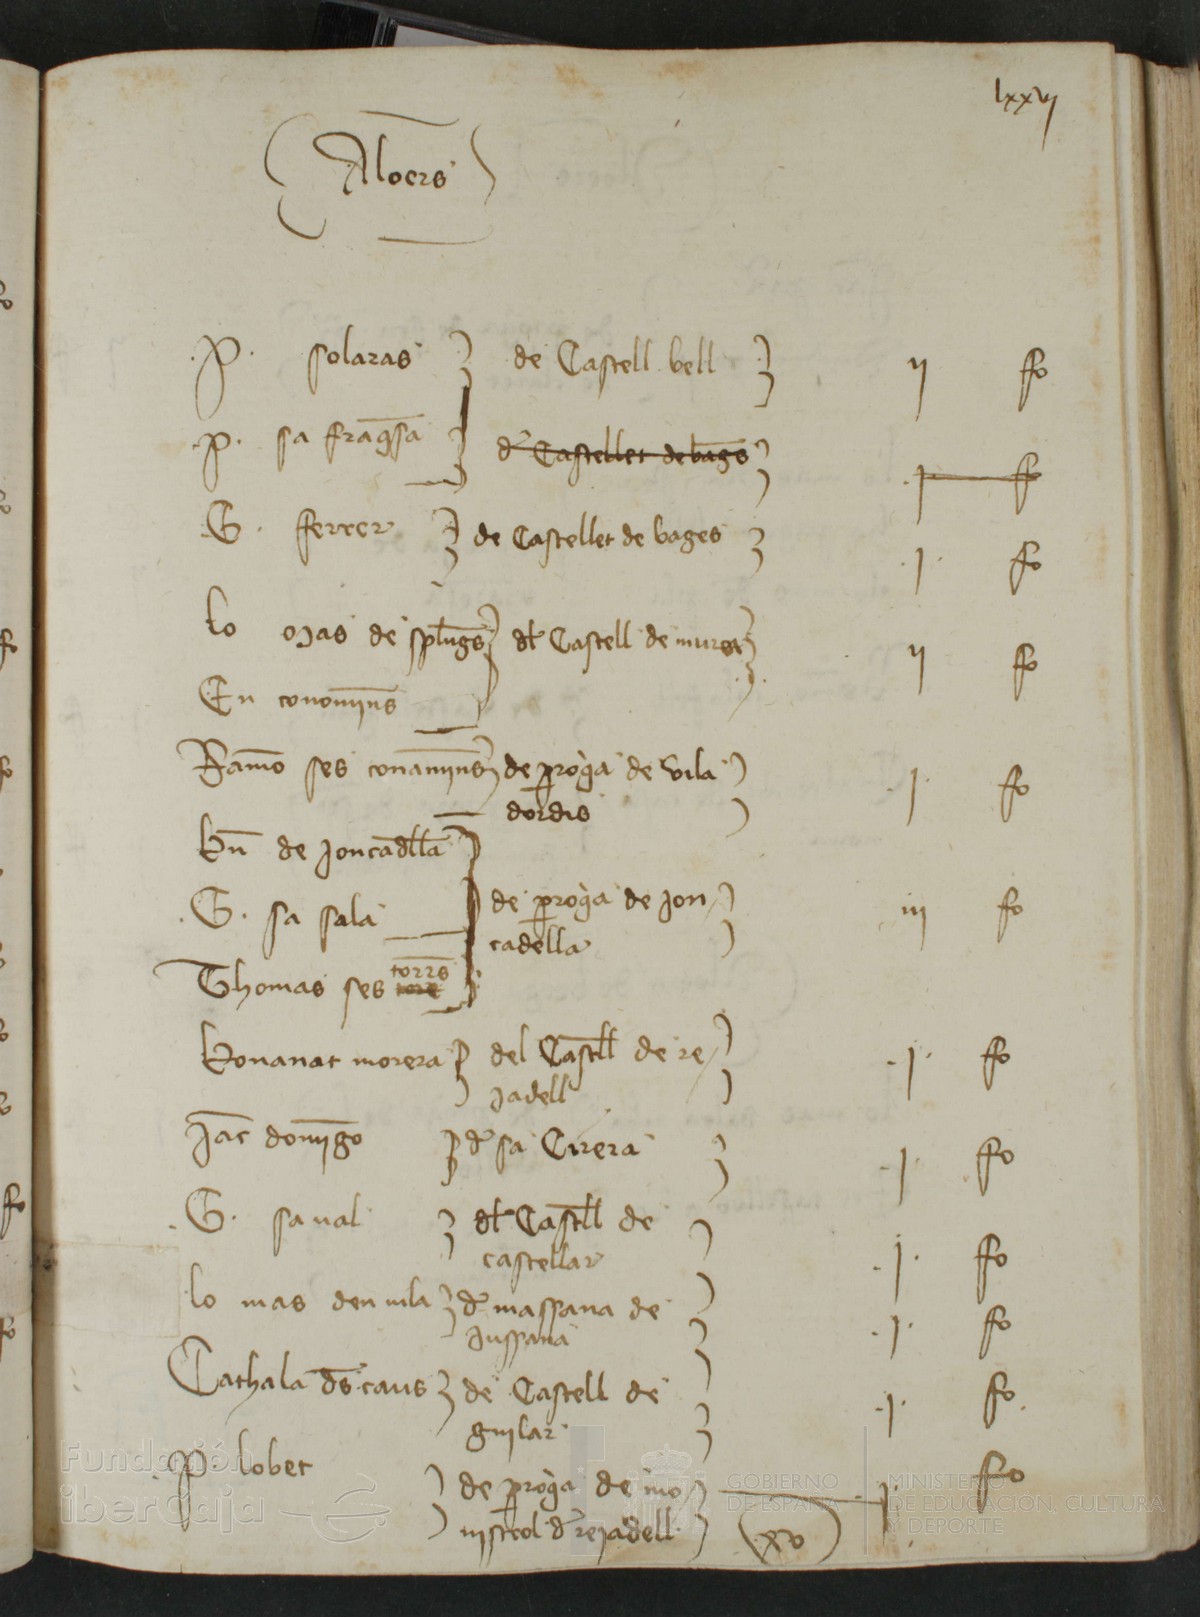 lxxvj
Aloers
.P. solaras de Castell bell ij fo
.P. sa fraq̄sa d' Castellet de baḡs .j. fo
G. ferrer de Castellet de bages .j. fo
lo mas de spl̄ugs dl Castell de murar ij fo
En conomīns
Ramō ses conamīns de p̱roq̄a de vila j. fo
dordis
bn̄ de joncadl̄la
G. sa sala de p̱roq̄a de jon iij fo
cadella
Thomas ses torrs̄ torre
bonanat morera del Castl̄l de re .j. fo
jadell
Jac̄ domīgo d' sa Cirera .j. fo
G. sa val dl Castl̄l de .j. fo
castellar
lo mas den vila d' maspana de .j. fo
juspana
Cathala ds̄ caus de Castell de .j. fo
guilar
.P. lobet de p̱roq̄a de mo .j. fo
nistrol d' rejadell
xv
Fundación
iberCaja
GOBIERNO
DE ESPAÑA
MINISTERIO
DE EDUCACIÓN, CULTURA
Y DEPORTE